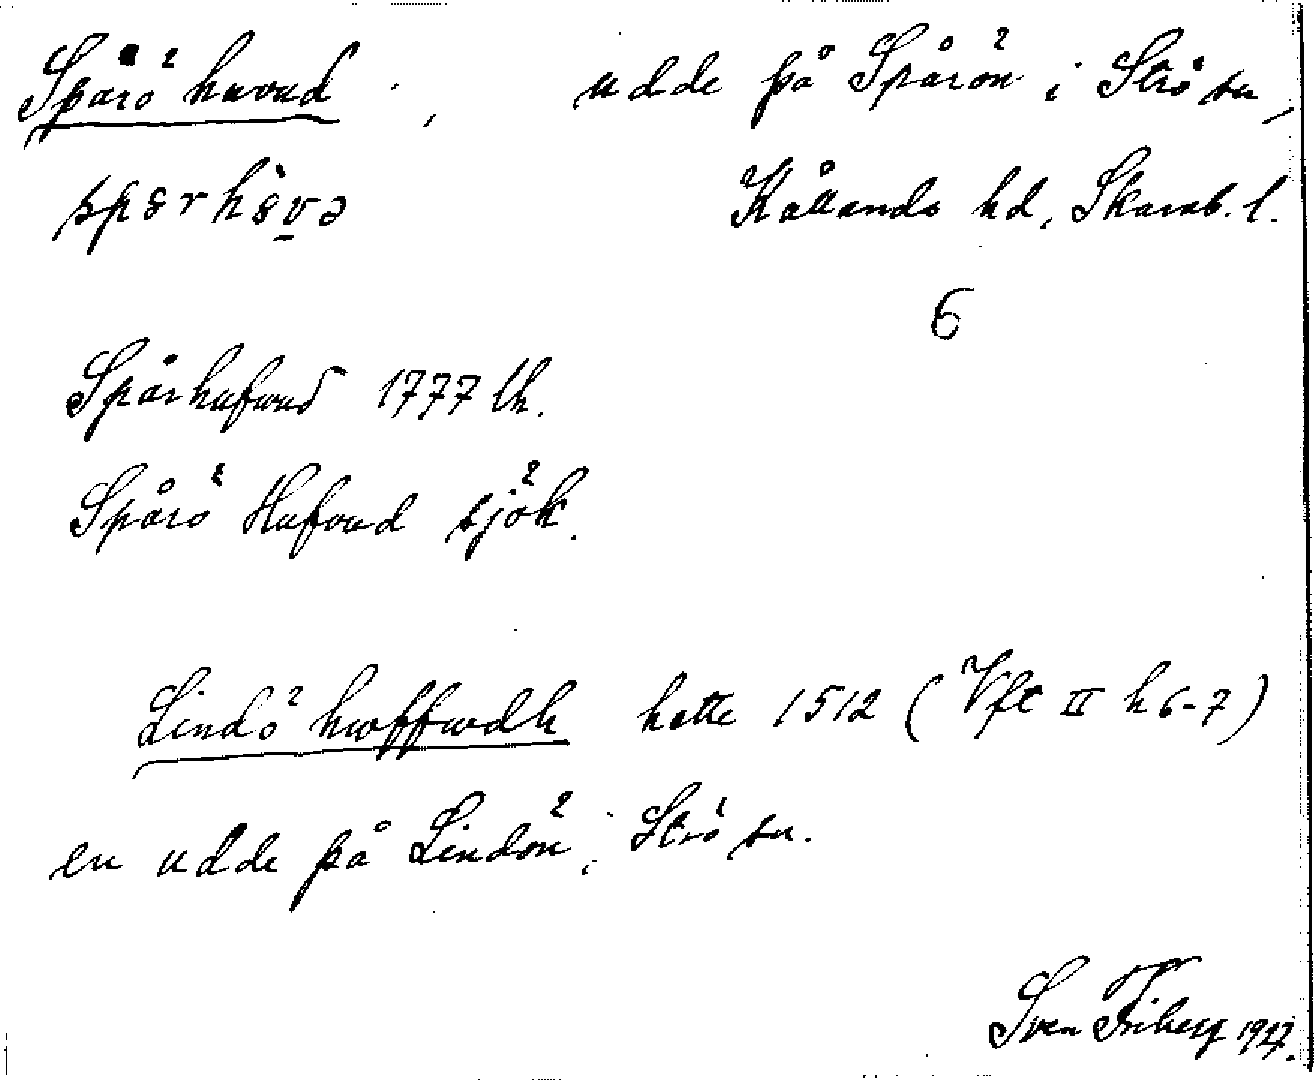 Spårö huvud, udde på Spårön i Strö sn,
Kållands hd, Skarab. l.
6
Spårhufwud 1777 lh.
Spårö Hufvud sjök.
Lindö hwffwdh hette 1512 (Vft II h 6-7)
en udde på Lindön, Strö sn.
Sven Friberg 1927.